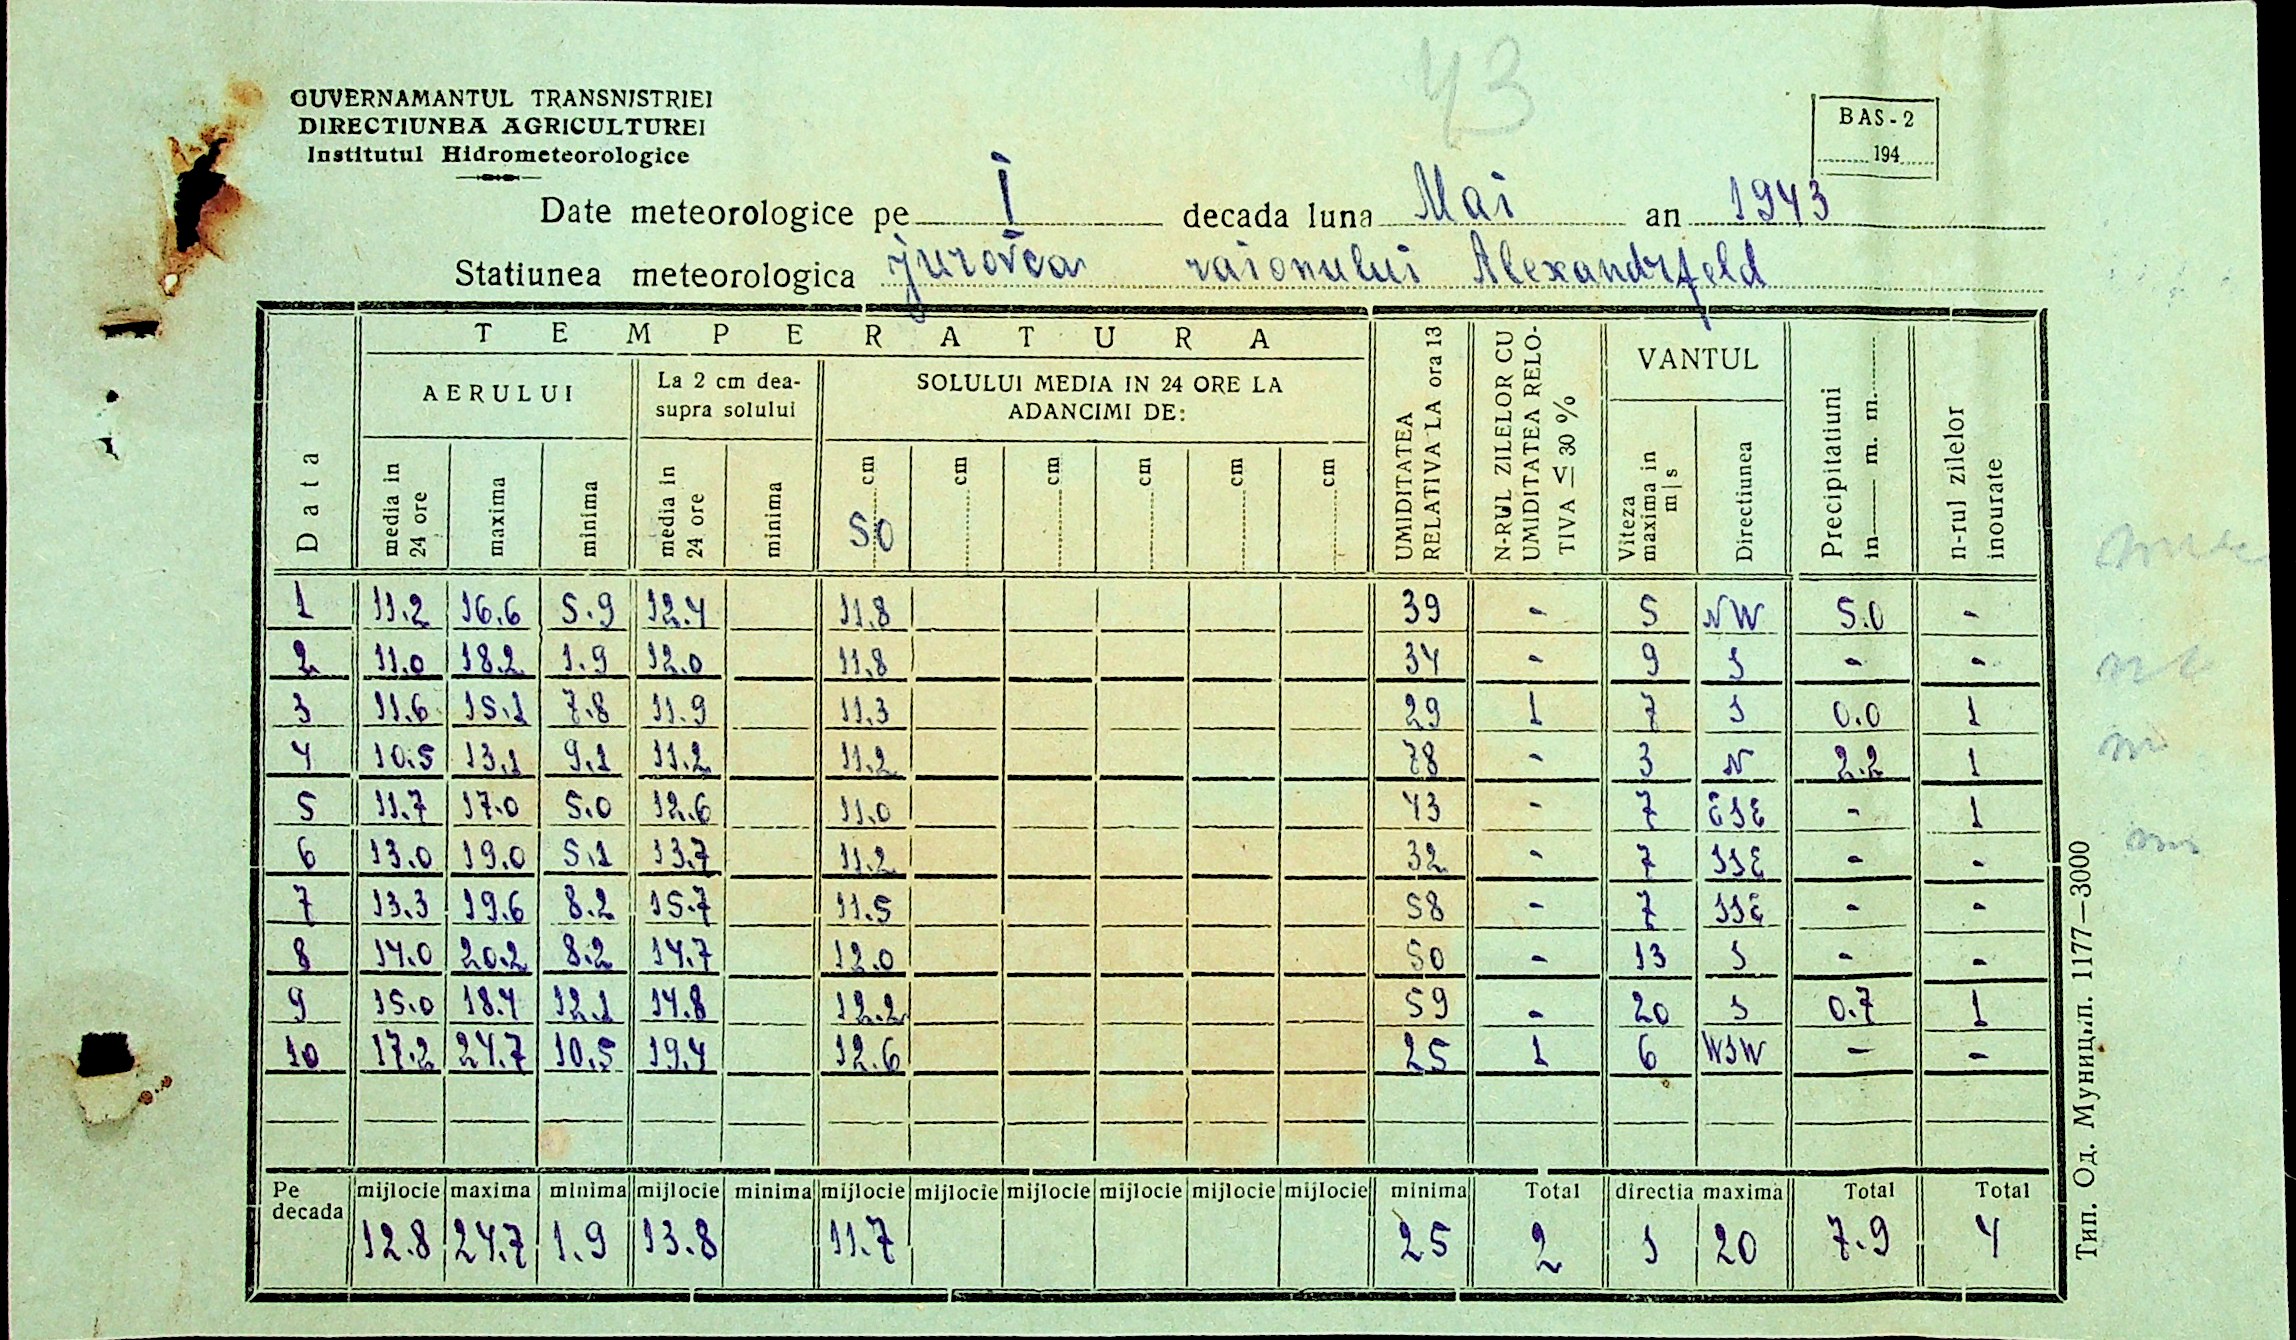 43
GUVERNAMANTUL TRANSNISTRIEI
DIRECTIUNEA AGRICULTUREI
Institutul Hidrometeorologice
BAS-2
194
Date meteorologice pe I decada luna Mai an 1943
Statiunea meteorologica raionului Alexandrfeld
Data
TEMPERATURA
AERULUI
media in 24 ore
maxima
minima
La 2 cm dea-
supra solului
media in 24 ore
minima
SOLULUI MEDIA IN 24 ORE LA
ADANCIMI DE:
50 cm
cm
cm
cm
cm
cm
UMIDITATEA
RELATIVA LA ora 13
N-RUL ZILELOR CU
UMIDITATEA RELO-
TIVA ≤ 30 %
VANTUL
Viteza
maxima in
m|s
Directiunea
Precipitatiuni
in m. m.
n-rul zilelor
inourate
1 11.2 16.6 5.9 12.4 11.8 39 - 5 NW 5.0 -
2 11.0 18.2 1.9 12.0 11.8 34 - 9 S - -
3 11.6 15.1 7.8 11.9 11.3 29 1 7 S 0.0 1
4 10.5 13.1 9.1 11.2 11.2 78 - 3 N 2.2 1
5 11.7 17.0 5.0 12.6 11.0 43 - 7 ESE - 1
6 13.0 19.0 5.1 13.7 11.2 32 - 7 SSE - -
7 13.3 19.6 8.2 15.7 11.5 58 - 7 SSE - -
8 14.0 20.2 8.2 14.7 12.0 50 - 13 S - -
9 15.0 18.4 12.1 14.8 12.2 59 - 20 S 0.7 1
10 17.2 24.7 10.5 19.4 12.6 25 1 6 WSW - -
Pe decada mijlocie maxima minima mijlocie minima mijlocie mijlocie mijlocie mijlocie mijlocie mijlocie minima Total directia maxima Total Total
12.8 24.7 1.9 13.8 11.7 25 2 S 20 7.9 4
Тип. Од. Муницип. 1177—3000